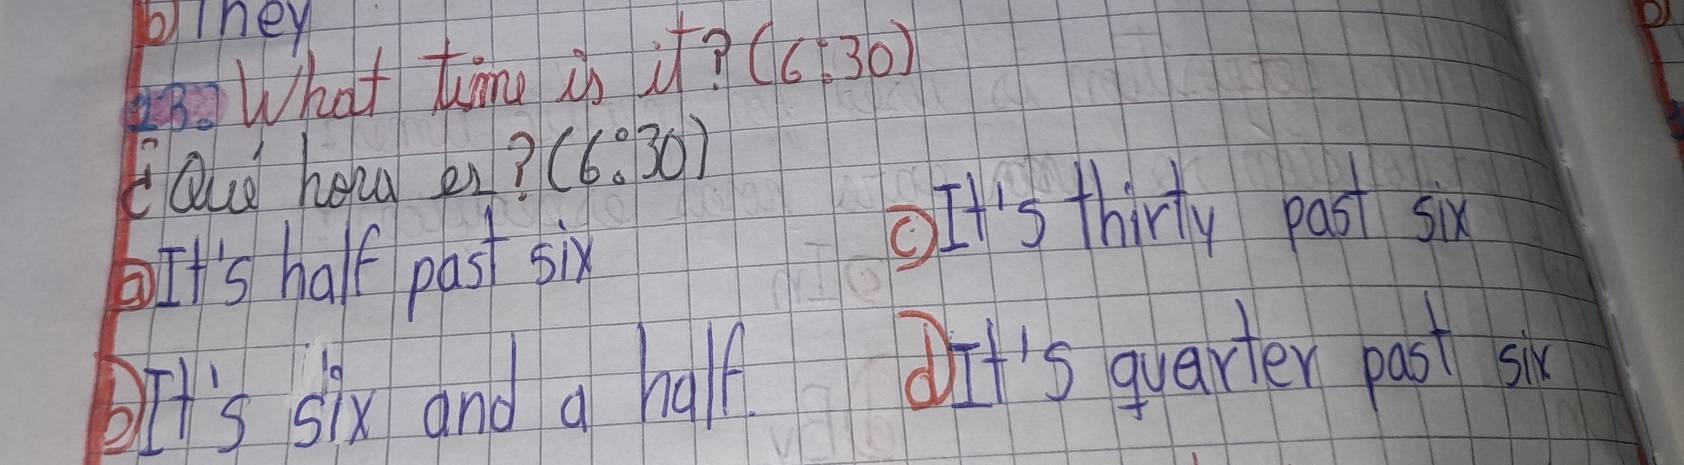 b) They
23. What time is it? (6:30)
¿Qué hora es? (6:30)
a) It's half past six
b) It's six and a half.
c) It's thirty past six
d) It's quarter past six